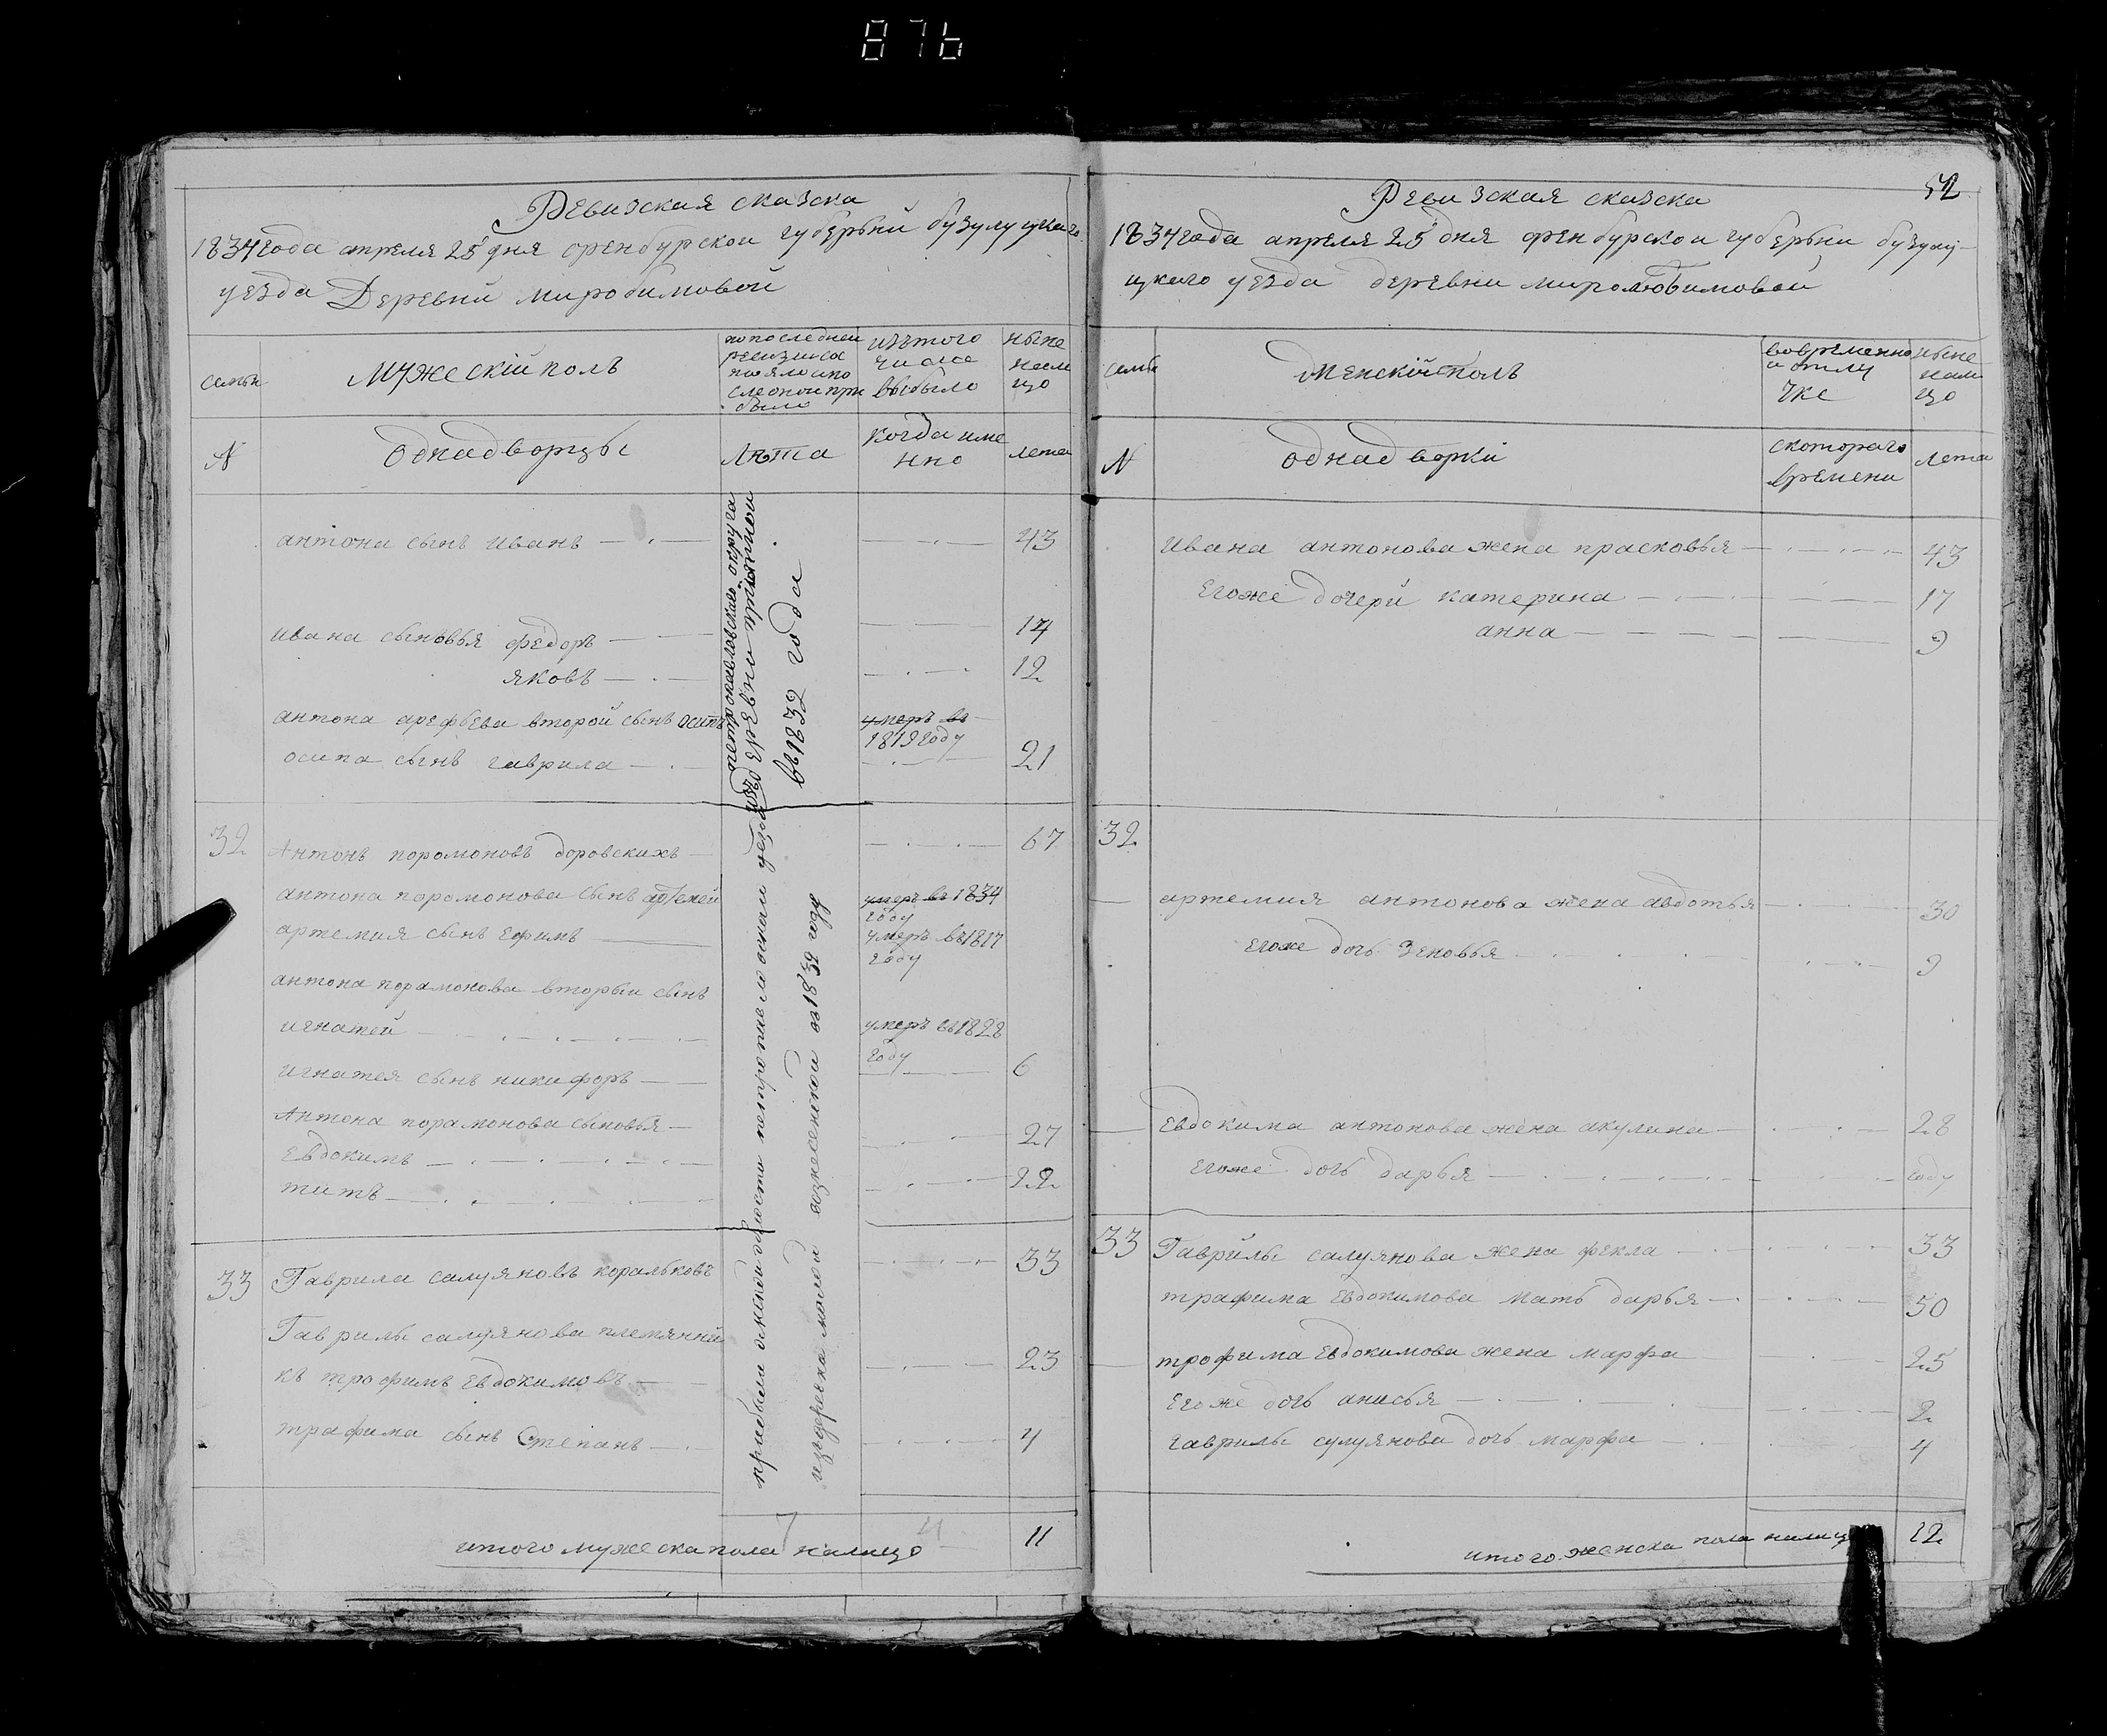 876
Ревизская сказска
1834 года апреля 25 дня оренбурской губерьнй бузулуцкаго
уезда Деревнй миробимовой
семьи
мужескій полъ
изътого
числа
выбыло
ныне
нали
цо
N
Однадворцы
Лѣта
когда име
нно
лета
антона сынъ иванъ
43
ивана сыновья федоръ
14
яковъ
12
антона арефьева второй сынъ осипъ
умеръ въ
1819 году
осипа сынъ гаврила
21
петропавловскаго округа
деревни
въ 1832 года
32
Антонъ поромоновъ боровскихъ
67
антона поромонова сынъ артемей
умеръ въ 1834
году
артемия сынъ Ефимъ
умеръ въ 1817
году
антона порамонова вторыи сынъ
игнатей
умеръ въ 1828
году
игнатея сынъ никифоръ
6
Антона порамонова сыновья
Евдокимъ
27
титъ
22
33
Гаврила салуяновъ коральковъ
33
Гаврилы салуянова племянни
къ трофимъ Евдокимовъ
23
трафима сынъ Степанъ
4
итого мужеска пола налицо
11
52
Ревизская сказска
1834 года апреля 25 дня оренбурской губерьни бузулу-
цкаго уезда деревни миролюбимовой
семьи
женскій полъ
ныне
нали
цо
N
однадворки
скотораго
времени
лета
Ивана антонова жена прасковья
43
Егоже дочерй катерина
17
анна
9
32
артемия антонова жена авдотья
30
Егоже дочь Зеновья
9
Евдокима антонова жена акулина
28
Егоже дочь дарья
году
33
Гаврилы салуянова жена фекла
33
трафима Евдокимова мать дарья
50
трофима Евдокимова жена марфа
25
Егоже дочь анисья
2
гаврилы сулуянова дочь марфа
4
итого женска пола
12